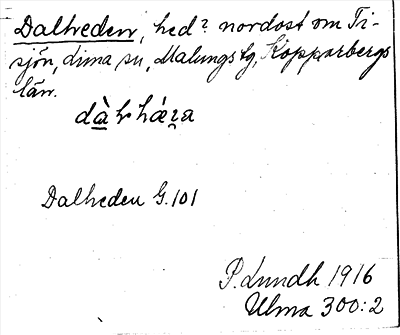 Dalheden, hed? nordost om Ti-
sjön, Lima sn, Malungs tg, Kopparbergs
län.
Dalheden G.101
P. Lundh 1916
Ulma 300:2